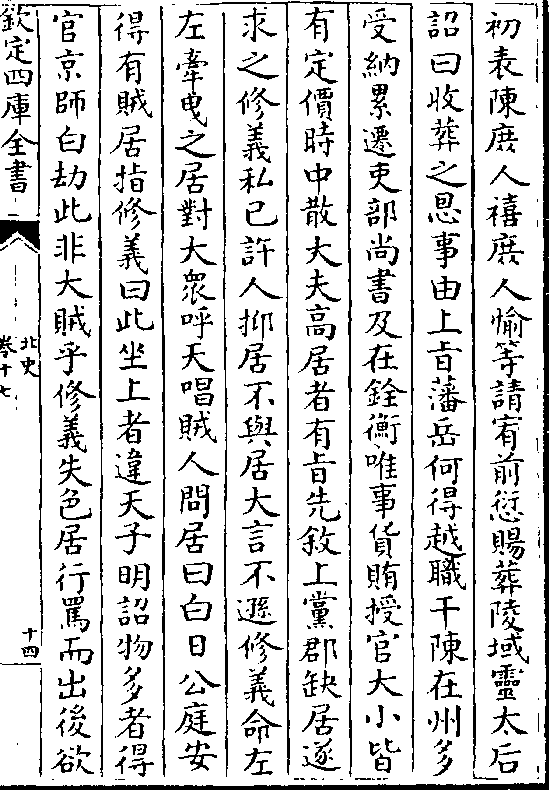 初表陳庶人禧庶人愉等請宥前愆賜葬陵域靈太后
詔曰收葬之恩事由上旨藩岳何得越職干陳在州多
受納累遷吏部尚書及在銓衡唯事貨賄授官大小皆
有定價時中散大夫高居者有旨先敘上黨郡缺居遂
求之修義私已許人抑居不與居大言不遜修義命左
左牽曳之居對大衆呼天唱賊人問居曰白日公庭安
得有賊居指修義曰此坐上者違天子明詔物多者得
官京師白劫此非大賊乎修義失色居行罵而出後欲
欽定四庫全書
北史
卷十七
十四